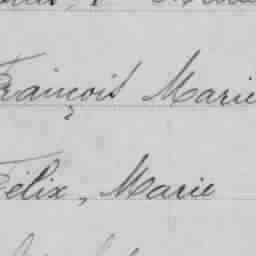 François Marie
Félix, Marie